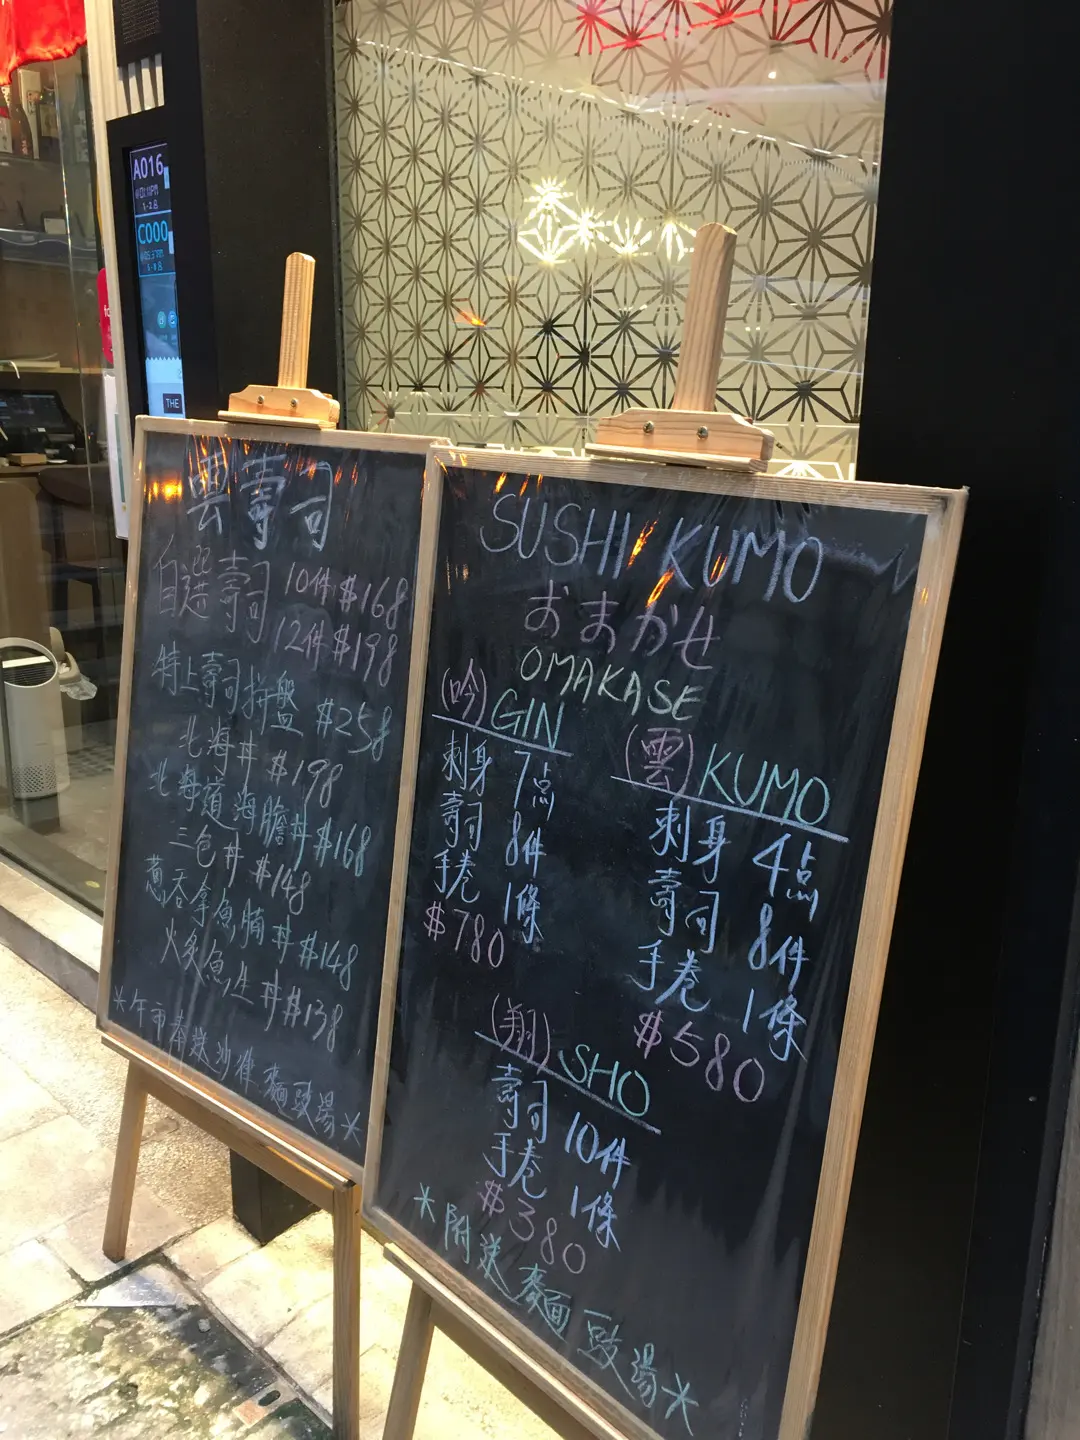 A016
C000
THE
雲壽司
自選壽司 10件 $168
12件 $198
特上壽司拼盤 $258
北海丼 $198
北海道海膽丼 $168
三色丼 $148
蔥吞拿魚腩丼 $148
火炙魚生丼 $138
*午市奉送沙律麵豉湯*
SUSHI KUMO
おまかせ
OMAKASE
(吟) GIN
刺身 7点
壽司 8件
手卷 1條
$780
(雲) KUMO
刺身 4点
壽司 8件
手卷 1條
$580
(翔) SHO
壽司 10件
手卷 1條
$380
*附送麵豉湯*